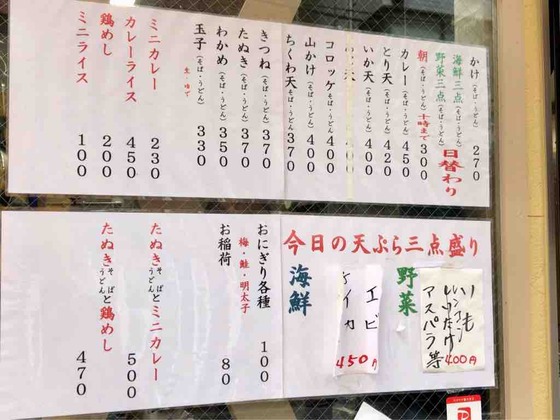 かけ(そば・うどん) 270
海鮮三点(そば・うどん)
野菜三点(そば・うどん)
日替わり
朝(そば・うどん)十時まで 300
カレー(そば・うどん) 450
とり天(そば・うどん) 420
いか天(そば・うどん) 400
天(そば・うどん) 400
山かけ(そば・うどん) 400
コロッケ(そば・うどん) 400
ちくわ天(そば・うどん) 370
きつね(そば・うどん) 370
たぬき(そば・うどん) 370
わかめ(そば・うどん) 350
玉子(そば・うどん) 330
生・ゆで
ミニカレー 230
カレーライス 450
鶏めし 200
ミニライス 100
今日の天ぷら三点盛り
野菜
いも
しいたけ
アスパラ等
400円
海鮮
エビ
イカ
450円
おにぎり各種 100
梅・鮭・明太子
お稲荷 80
たぬきそばうどんとミニカレー 500
たぬきそばうどんと鶏めし 470